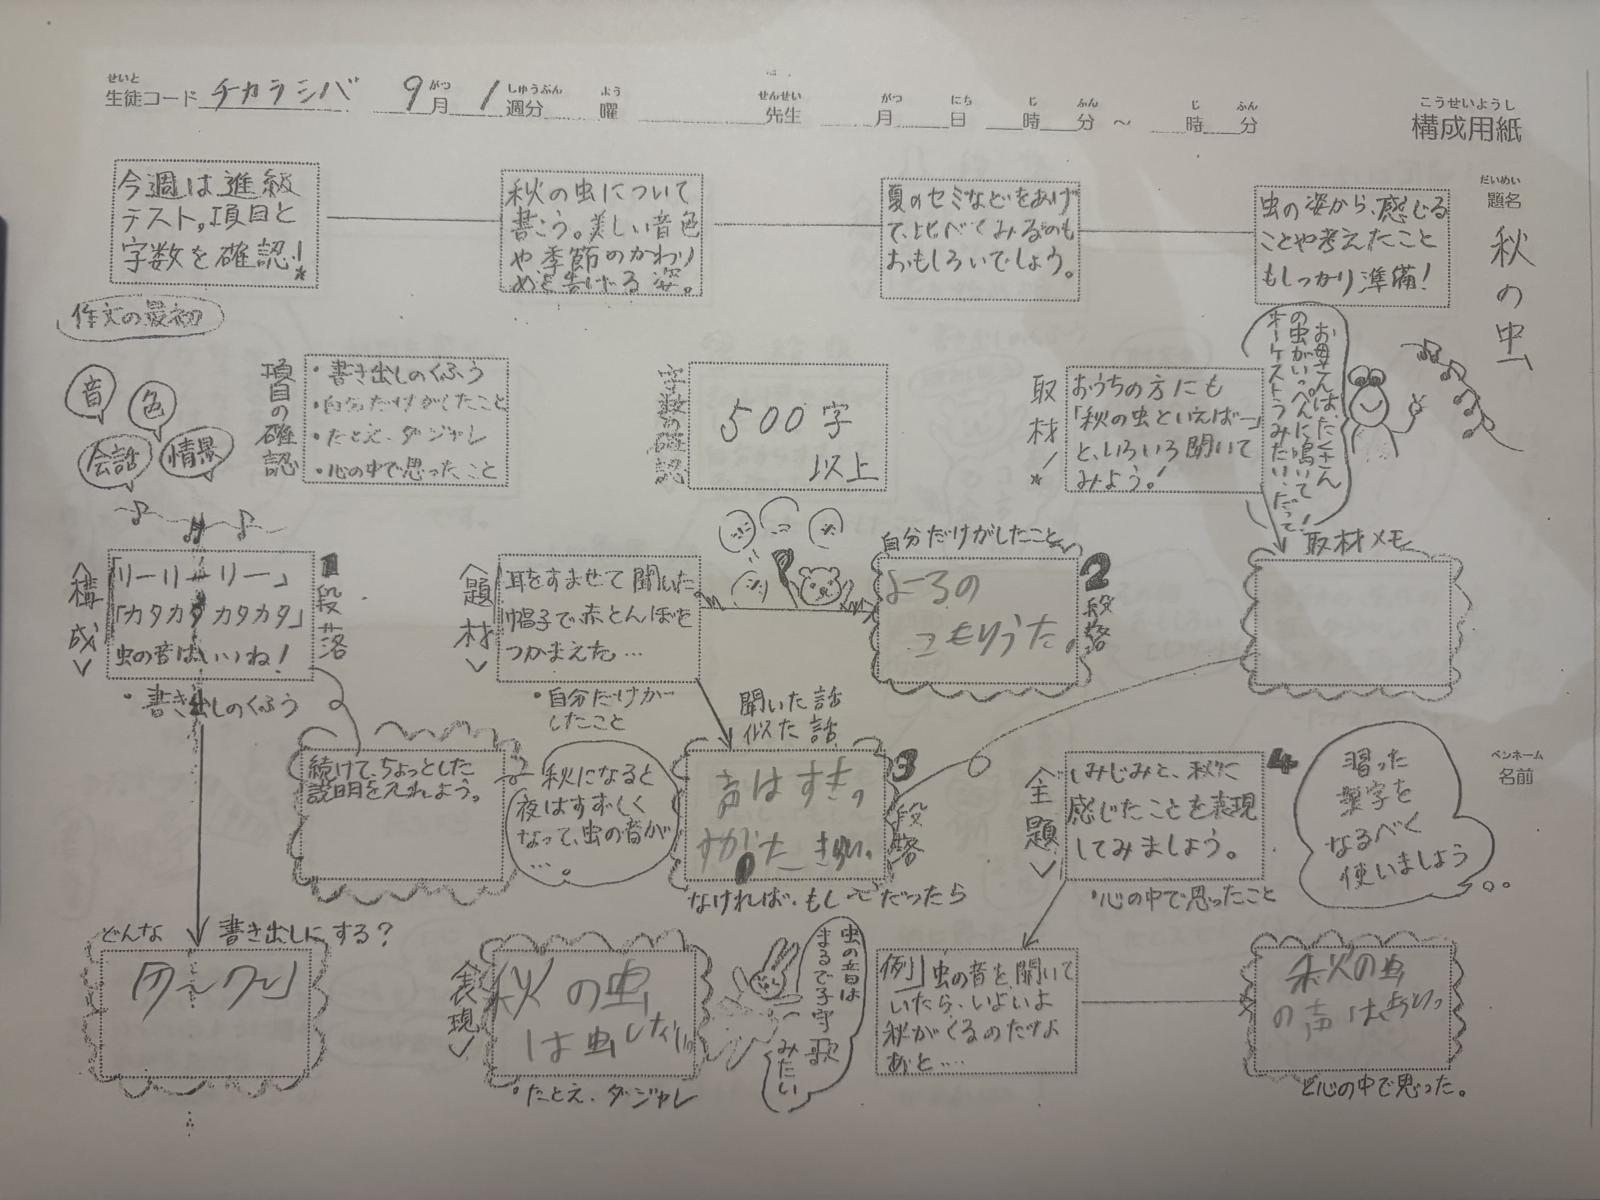 せいと
生徒コード チカラシバ 9月 1週分 曜 先生 月 日 時 分 ～ 時 分
がつ しゅうぶん よう せんせい がつ にち じ ふん じ ふん
こうせいようし
構成用紙
だいめい
題名
秋の虫
今週は進級
テスト。項目と
字数を確認!
秋の虫について
書こう。美しい音色
や季節のかわり
めを告げる姿。
夏のセミなどをあげ
て、比べてみるのも
おもしろいでしょう。
虫の姿から、感じる
ことや考えたこと
もしっかり準備!
作文の最初
音
色
会話
情景
項目の確認
・書き出しのくふう
・自分だけがしたこと
・たとえ、ダジャレ
・心の中で思ったこと
字数の確認
500字
以上
取材!
おうちの方にも
「秋の虫といえば…」
と、いろいろ聞いて
みよう!
お母さんは、たくさん
の虫がいっぺんに鳴いて!
オーケストラみたい、だって!
取材メモ
〈構成〉
1段落
「リーリーリー」
「カタカタカタカタ」
虫の音はいいね!
・書き出しのくふう
〈題材〉
耳をすませて聞いた
帽子で赤とんぼを
つかまえた…
・自分だけが
したこと
自分だけがしたこと
2段落
よるの
こもりうた。
続けて、ちょっとした
説明を入れよう。
秋になると
夜はすずしく
なって、虫の音が
…。
聞いた話
似た話
3段落
声はすき。
すがた きらい。
なければ、もし〜だったら
〈主題〉
4
しみじみと、秋に
感じたことを表現
してみましょう。
・心の中で思ったこと
習った
漢字を
なるべく
使いましょう
ペンネーム
名前
どんな 書き出しにする?
〈表現〉
秋の虫
は虫
・たとえ、ダジャレ
虫の音は
まるで子守歌
みたい
例」虫の音を聞いて
いたら、いよいよ
秋がくるのだなあ
あと…
秋の虫
の声は
と心の中で思った。